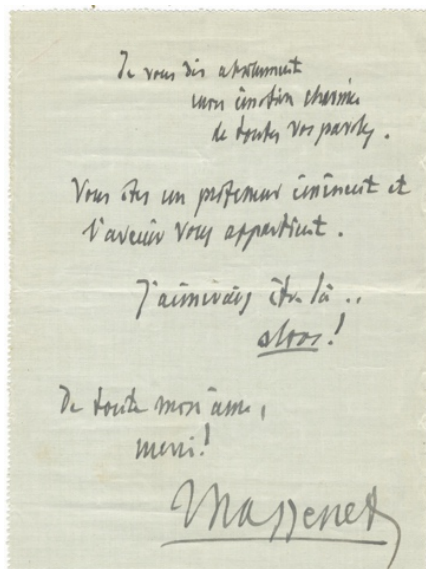 Je vous dis absolument
mon émotion charmée
de toutes vos paroles.
Vous êtes un professeur éminent et
l'avenir vous appartient.
J'aimerais être là..
alors!
De toute mon âme,
merci!
Massenet